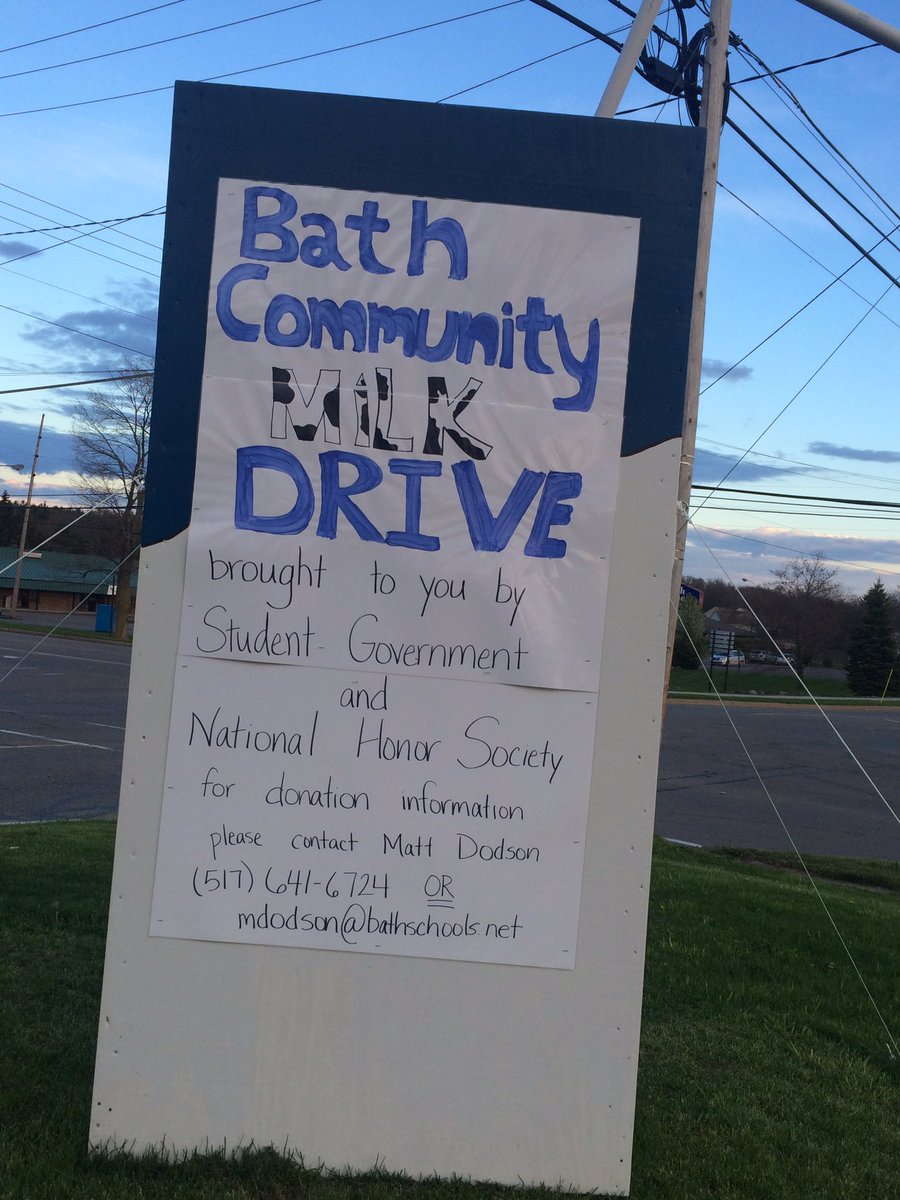 Bath
Community
MiLK
DRIVE
brought to you by
Student Government
and
National Honor Society
for donation information
please contact Matt Dodson
(517) 641-6724 OR
mdodson@bathschools.net